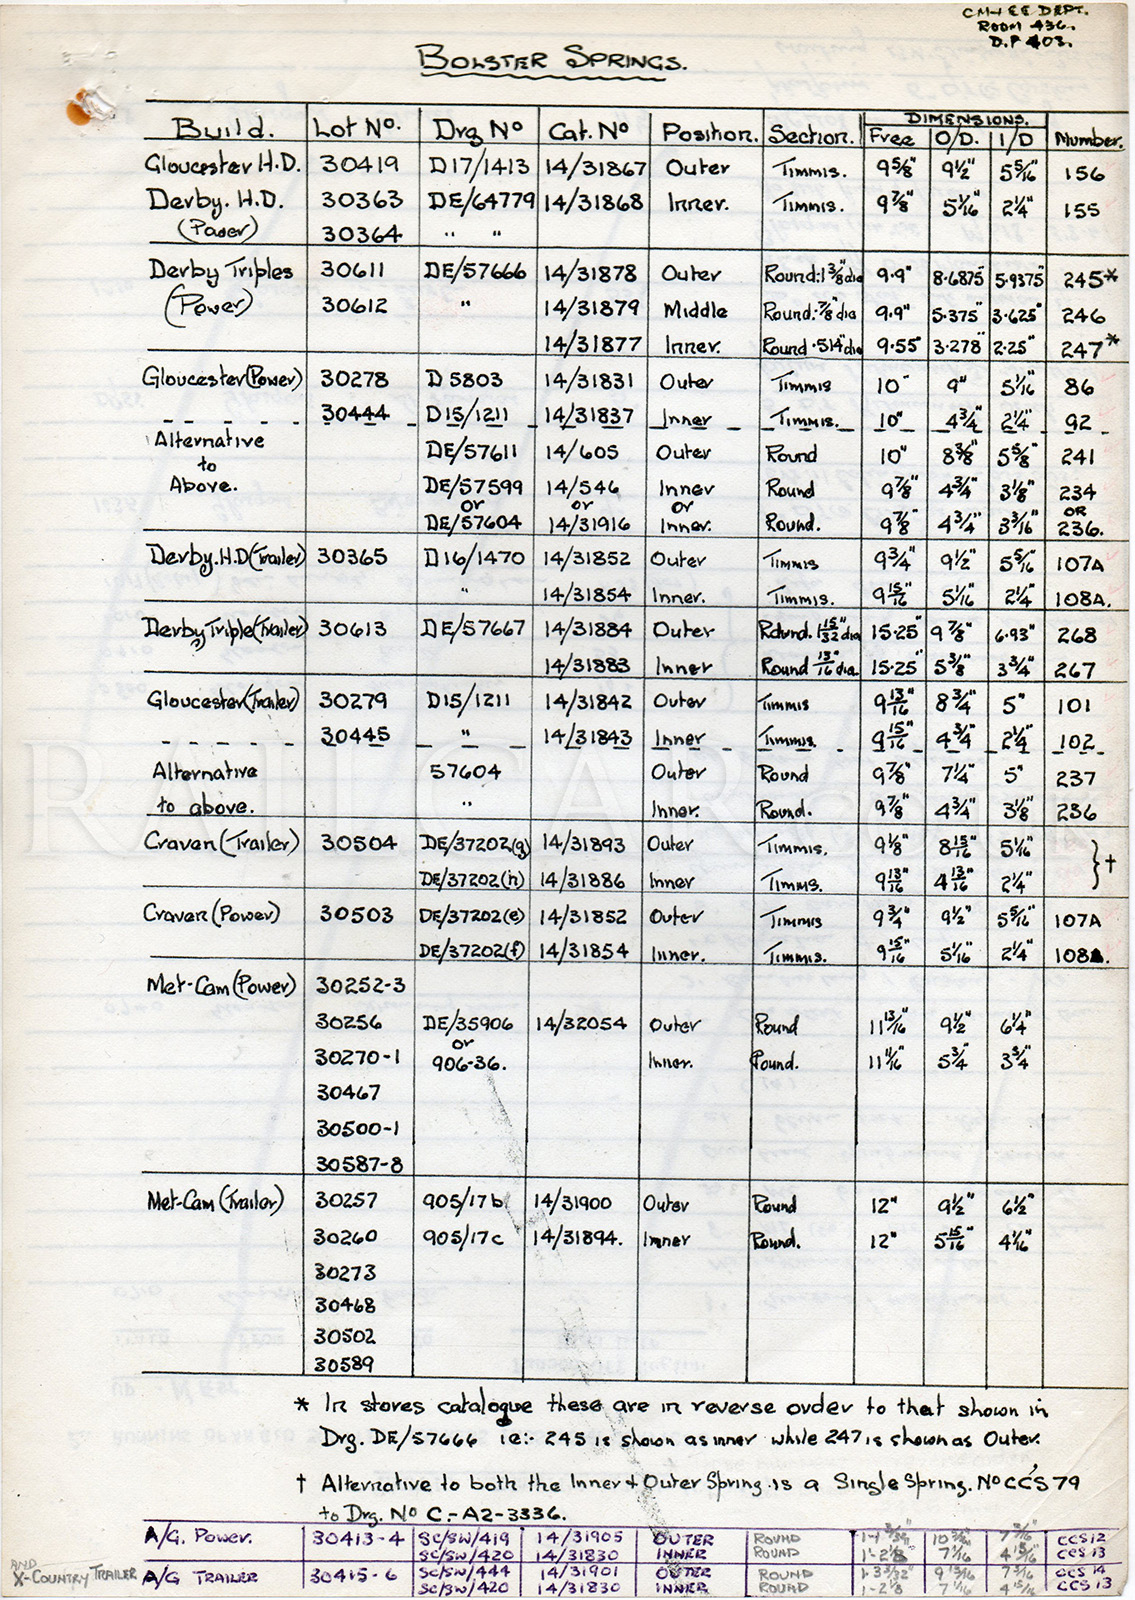 CM+EE DEPT.
ROOM 436.
D.P 403.
BOLSTER SPRINGS.
DIMENSIONS.
Build. Lot No. Drg No Cat. No Position. Section. Free O/D. I/D Number.
Gloucester H.D. 30419 D17/1413 14/31867 Outer Timmis. 9 5/8" 9 1/2" 5 5/16" 156
Derby. H.D. 30363 DE/64779 14/31868 Inner. Timmis. 9 7/8" 5 1/16" 2 1/4" 155
(Power) 30364 " "
Derby Triples 30611 DE/57666 14/31878 Outer Round:1 3/8" dia 9.9" 8.6875" 5.9375" 245*
(Power) 30612 " 14/31879 Middle Round: 7/8" dia 9.9" 5.375" 3.625" 246
14/31877 Inner. Round .514" dia 9.55" 3.278" 2.25" 247*
Gloucester(Power) 30278 D 5803 14/31831 Outer Timmis 10" 9" 5 1/16" 86
30444 D15/1211 14/31837 Inner Timmis. 10" 4 3/4" 2 1/4" 92
Alternative DE/57611 14/605 Outer Round 10" 8 3/8" 5 5/8" 241
to
Above. DE/57599 14/546 Inner Round 9 7/8" 4 3/4" 3 1/8" 234
or or or OR
DE/57604 14/31916 Inner. Round. 9 7/8" 4 3/4" 3 3/16" 236.
Derby.H.D(Trailer) 30365 D16/1470 14/31852 Outer Timmis 9 3/4" 9 1/2" 5 5/16" 107A
" 14/31854 Inner. Timmis. 9 15/16" 5 1/16" 2 1/4" 108A.
Derby Triple(Trailer) 30613 DE/57667 14/31884 Outer Round. 1 15/32" dia 15.25" 9 7/8" 6.93" 268
14/31883 Inner Round 13/16" dia. 15.25" 5 3/8" 3 3/4" 267
Gloucester(Trailer) 30279 D15/1211 14/31842 Outer Timmis 9 13/16" 8 3/4" 5" 101
30445 " 14/31843 Inner Timmis. 9 15/16" 4 3/4" 2 1/4" 102
Alternative 57604 Outer Round 9 7/8" 7 1/4" 5" 237
to above. " Inner. Round. 9 7/8" 4 3/4" 3 1/8" 236
Craven(Trailer) 30504 DE/37202(g) 14/31893 Outer Timmis. 9 1/8" 8 15/16" 5 1/16" } †
DE/37202(h) 14/31886 Inner Timms. 9 13/16" 4 13/16" 2 1/4"
Craven(Power) 30503 DE/37202(e) 14/31852 Outer Timmis 9 3/4" 9 1/2" 5 5/16" 107A
DE/37202(f) 14/31854 Inner. Timmis. 9 15/16" 5 1/16" 2 1/4" 108A.
Met-Cam(Power) 30252-3
30256 DE/35906 14/32054 Outer Round 11 13/16" 9 1/2" 6 1/4"
or
30270-1 906-36. Inner. Round. 11 11/16" 5 3/4" 3 3/4"
30467
30500-1
30587-8
Met-Cam(Trailer) 30257 905/17b 14/31900 Outer Round 12" 9 1/2" 6 1/2"
30260 905/17c 14/31894. Inner Round. 12" 5 15/16" 4 1/16"
30273
30468
30502
30589
* In stores catalogue these are in reverse order to that shown in
Drg. DE/57666 ie:- 245 is shown as inner while 247 is shown as Outer.
† Alternative to both the Inner + Outer Spring is a Single Spring. No CCS 79
to Drg. No C.-A2-3336.
A/G. Power. 30413-4 SC/SW/419 14/31905 OUTER ROUND CCS12
SC/SW/420 14/31830 INNER ROUND 1-2 1/8 7 1/16 4 15/16" CCS 13
AND
X-COUNTRY TRAILER
A/G TRAILER 30415-6 SC/SW/444 14/31901 OUTER ROUND 1-3 3/32" 9 13/16 7 3/16 CCS 14
SC/SW/420 14/31830 INNER ROUND 1-2 1/8 7 1/16 4 15/16 CCS 13
RAILCAR